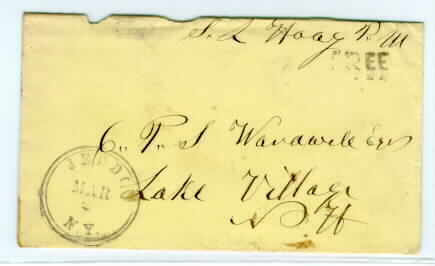 S. L Hoag P. M
FREE
C. P. S Wardwell Esqr
Lake Village
N. H
JEDDO
MAR
N.Y.